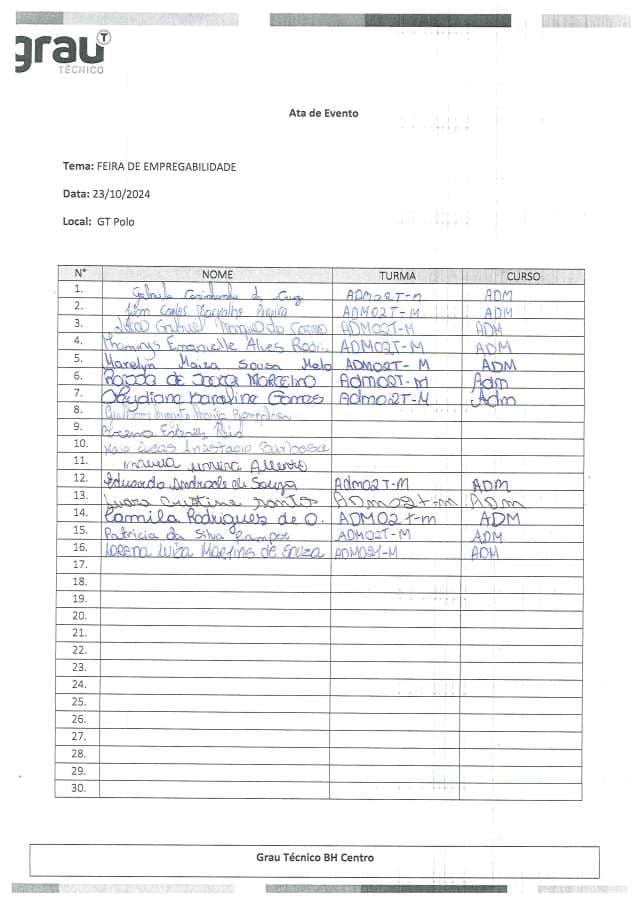 grau T
TÉCNICO
Ata de Evento
Tema: FEIRA DE EMPREGABILIDADE
Data: 23/10/2024
Local: GT Polo
N° NOME TURMA CURSO
1. Gabriela da Cruz ADM02T-M ADM
2. Carlos Pereira ADM02T-M ADM
3. João Gabriel ADM02T-M ADM
4. Thamirys Emanuelle Alves Rodri.. ADM02T-M ADM
5. Marelyn Maiza Sousa Melo ADM02T-M ADM
6. DE MARCELINO ADM02T-M Adm
7. Karoline Gomes Adm02T-M Adm
8.
9.
10. Kaio Lucas Anastacio Barbosa
11.
12. Eduardo Andrade de Souza Adm02T-M ADM
13. Cristine ADm02t-m ADm
14. Camila Rodrigues de O. ADM02T-m ADM
15. Patricia da Silva Campos ADM02T-M ADM
16. Lorena Luiza Martins de Souza ADM02T-M ADM
17.
18.
19.
20.
21.
22.
23.
24.
25.
26.
27.
28.
29.
30.
Grau Técnico BH Centro